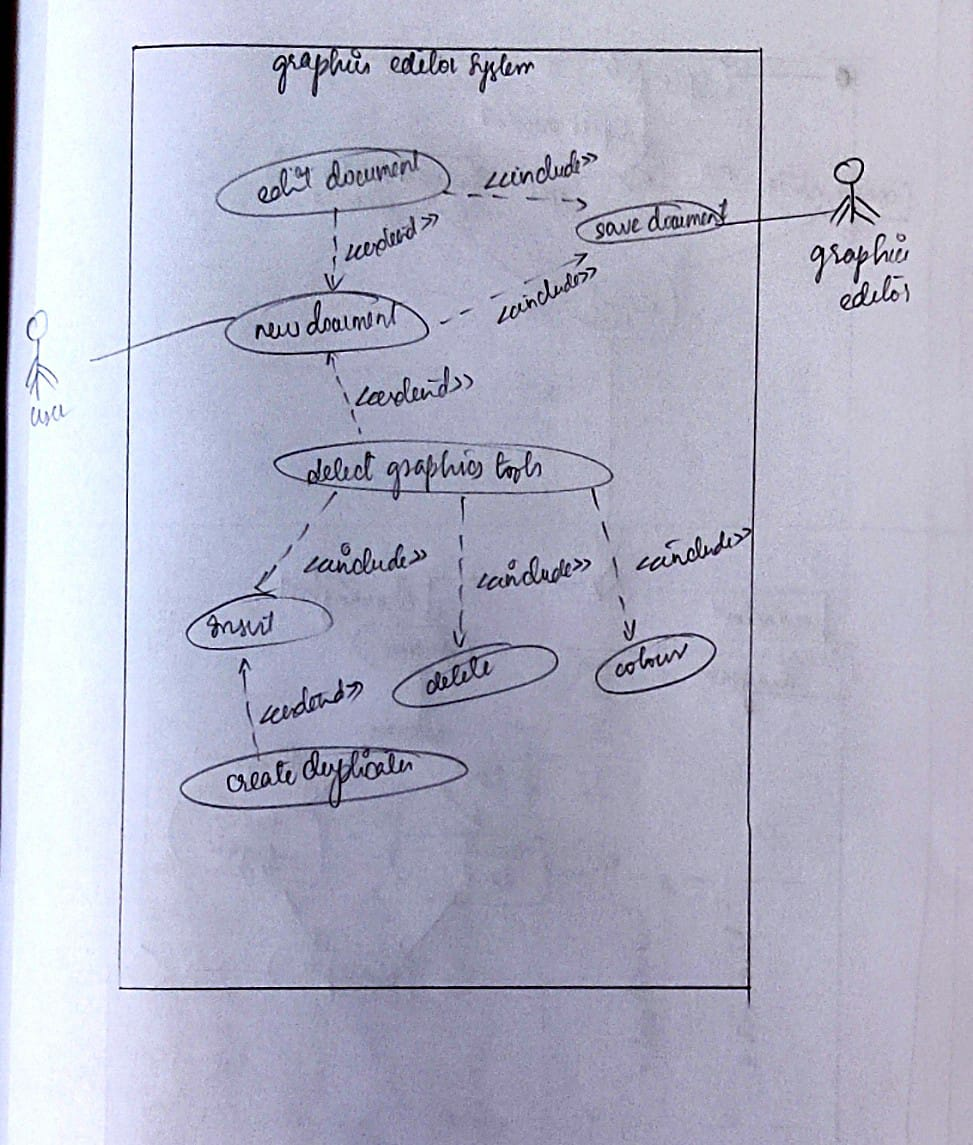 graphics editor System
edit document
<<include>>
save document
<<extend>>
graphics
editor
<<include>>
new document
user
<<extend>>
select graphics tools
<<include>>
<<include>>
<<include>>
Insert
delete
colour
<<extend>>
create duplicates